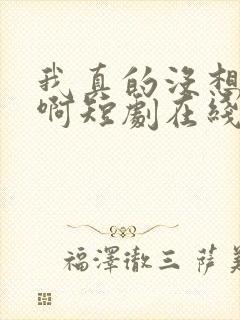 我真的没想
啊短劇在綫
福澤徹三 萨